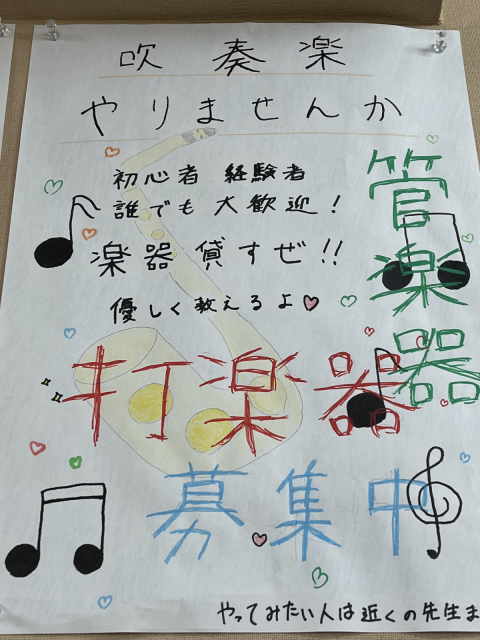 吹奏楽
やりませんか
初心者 経験者
誰でも 大歓迎！
楽器貸すぜ!!
優しく教えるよ♡
管楽器
打楽器
募集中
やってみたい人は近くの先生ま